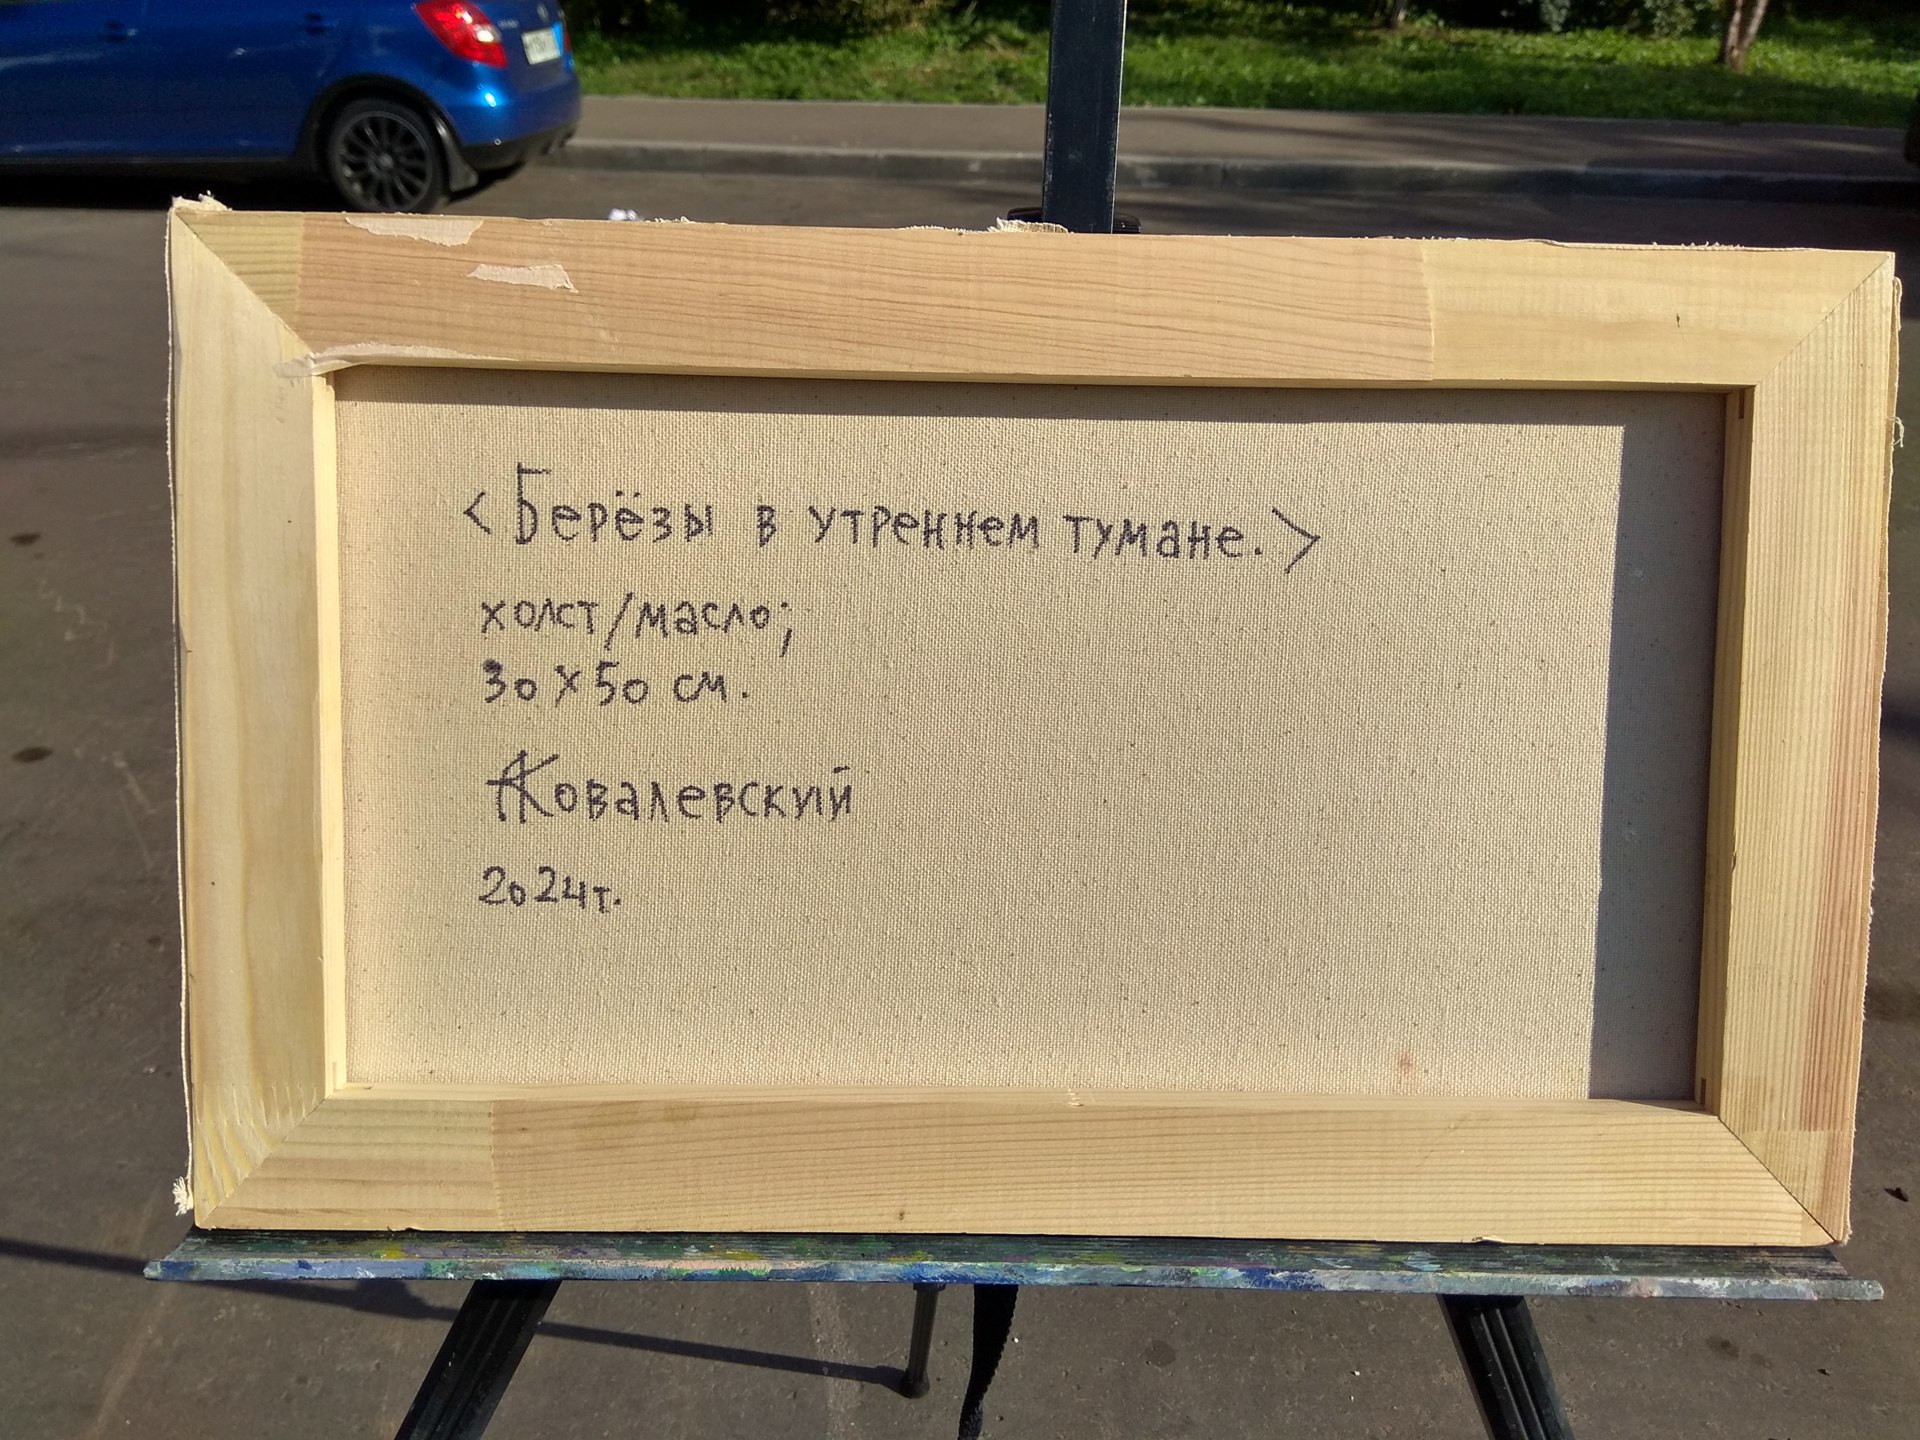 <Берёзы в утреннем тумане.>
холст/масло;
30х50 см.
АКовалевский
2024г.